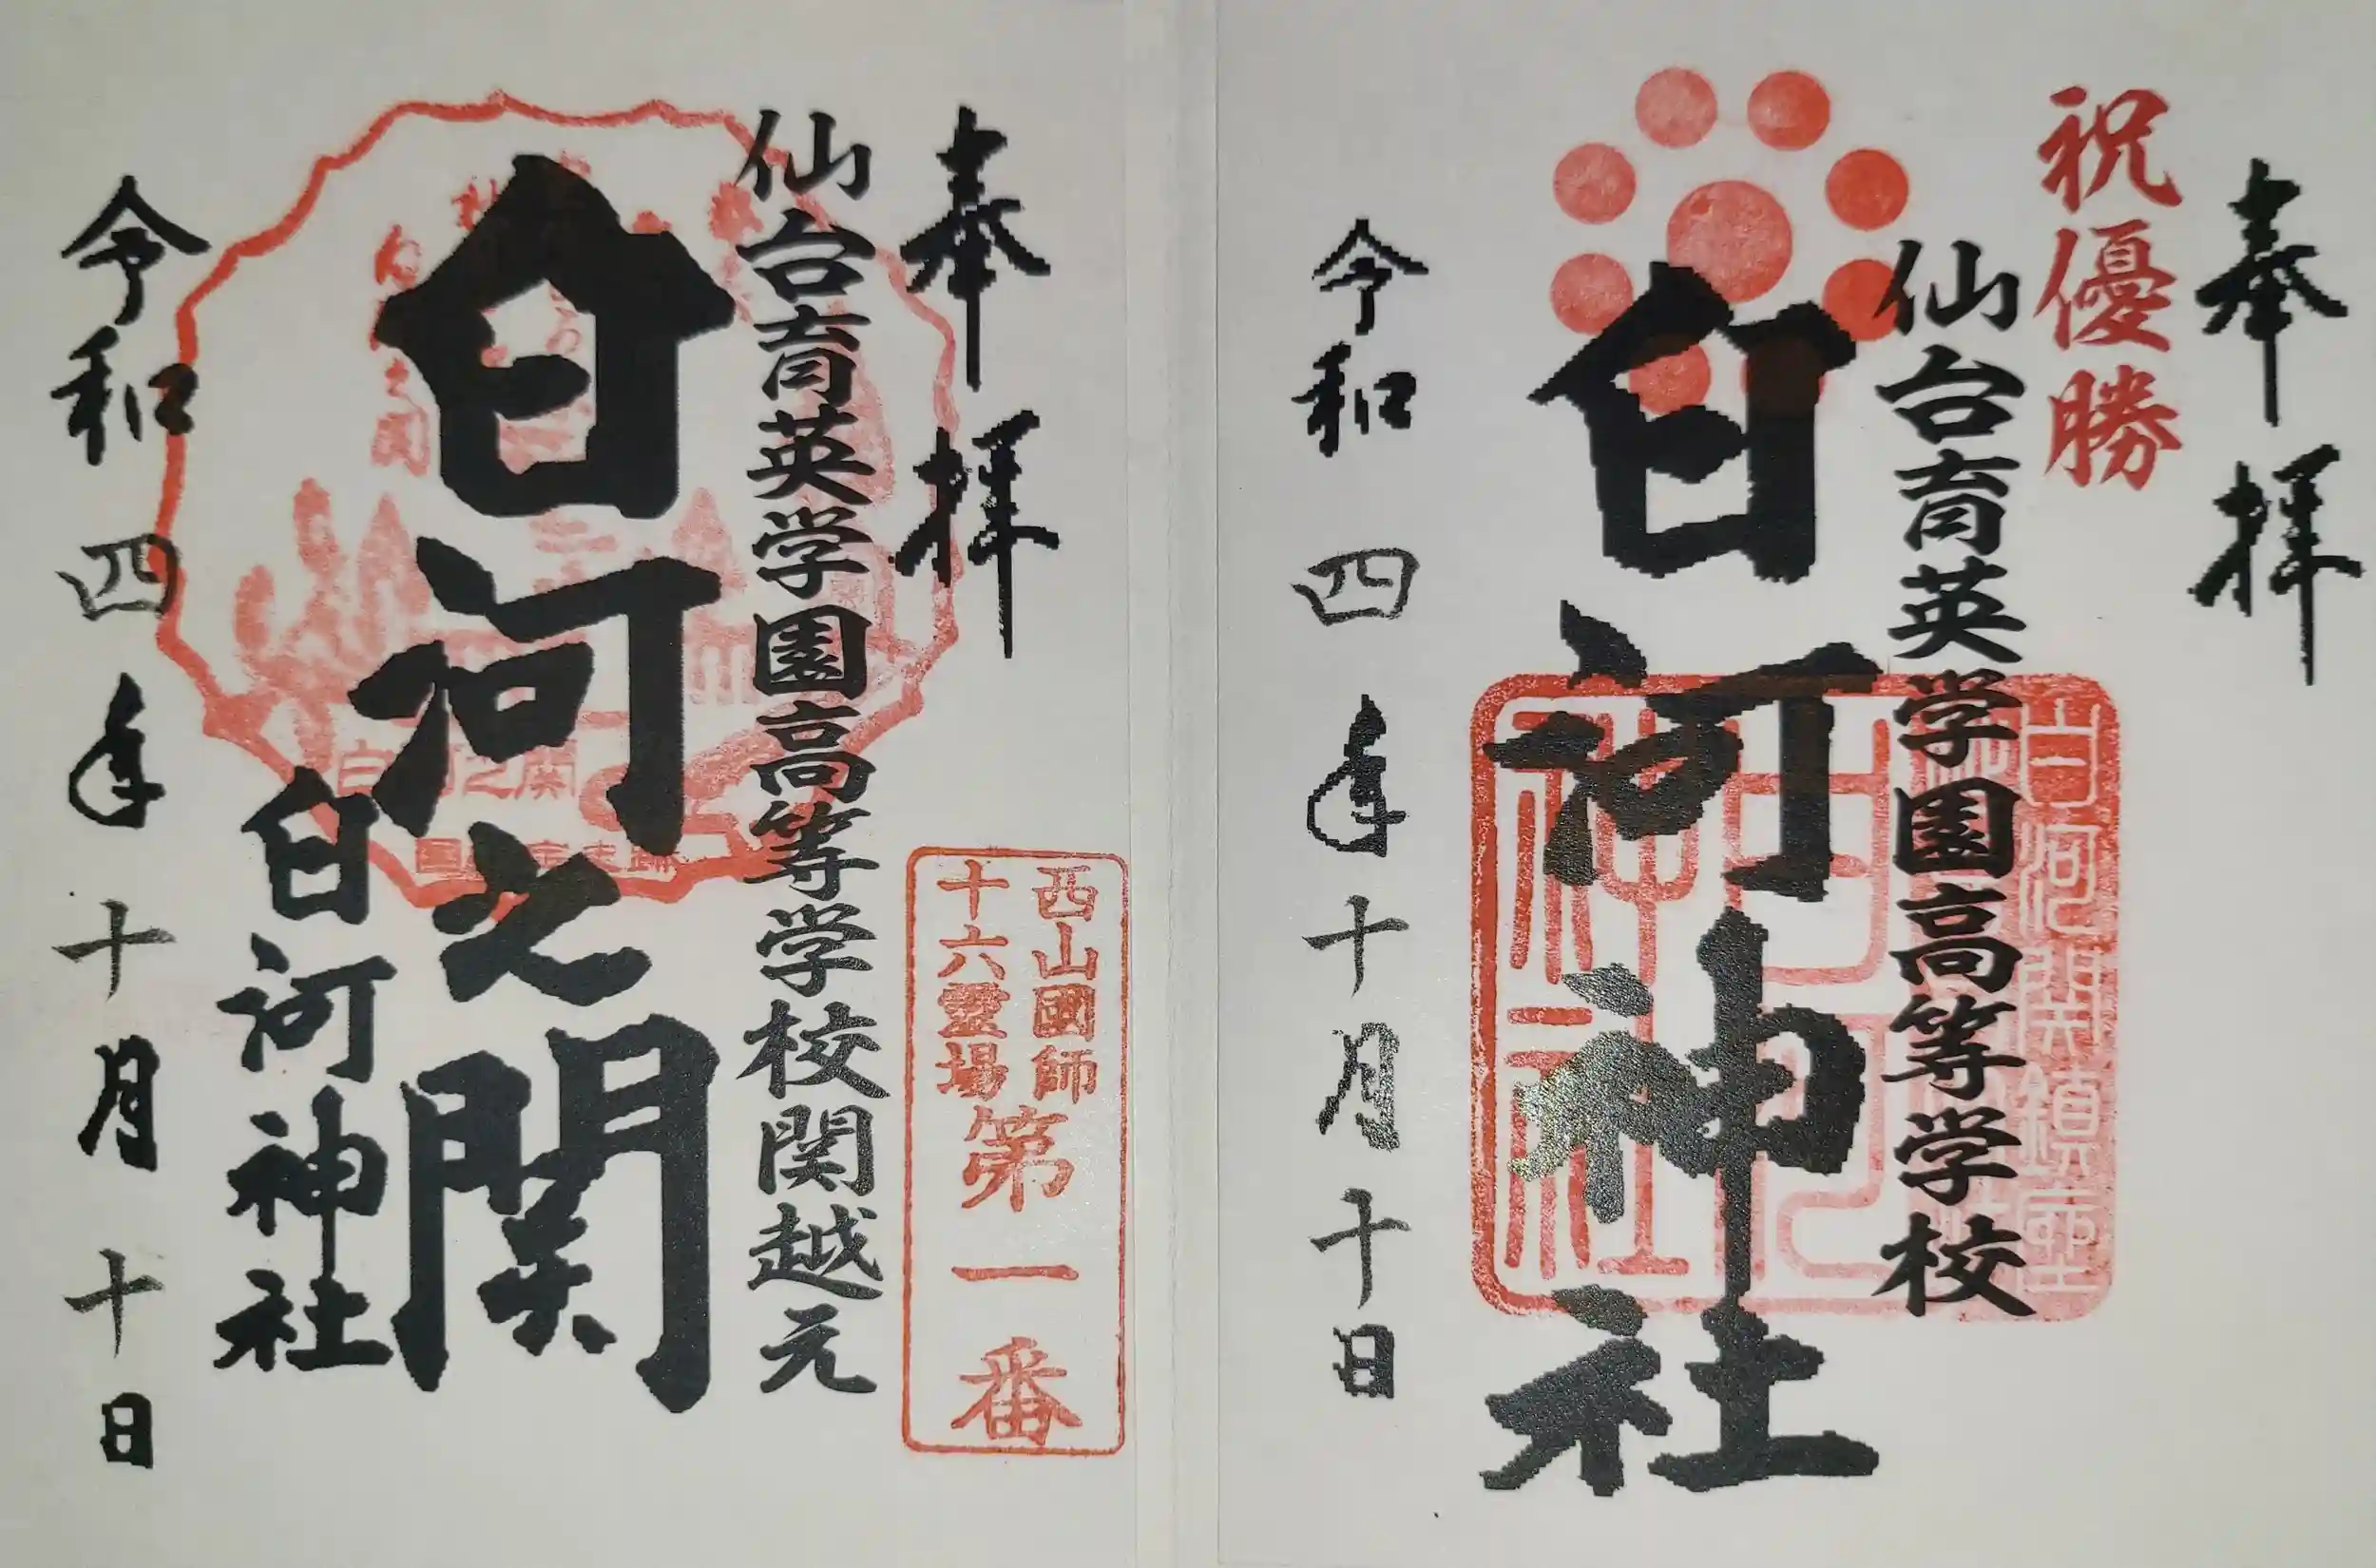 奉拝
祝優勝
仙台育英学園高等学校
白河神社
白河関鎮座
令和四年十月十日
奉拝
西山國師
十六霊場
第一番
仙台育英学園高等学校関越元
白河之関
白河神社
白河之関
令和四年十月十日